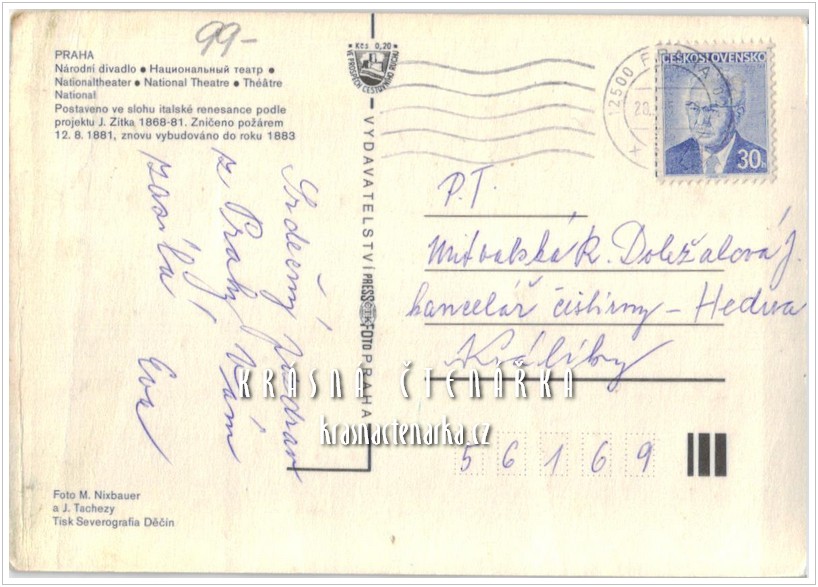 99-
PRAHA
Národní divadlo • Национальный театр •
Nationaltheater • National Theatre • Théâtre
National
Postaveno ve slohu italské renesance podle
projektu J. Zítka 1868-81. Zničeno požárem
12. 8. 1881, znovu vybudováno do roku 1883
Srdečný pozdrav
z Prahy Vám
zasílá Eva
Foto M. Nixbauer
a J. Tachezy
Tisk Severografia Děčín
Kčs 0,20
VE PROSPĚCH CESTOVNÍHO RUCHU
VYDAVATELSTVÍ PRESSFOTO PRAHA
12500 PRAHA
ČESKOSLOVENSKO
30h
P.T.
Mitvalská R. Doležalová J.
kancelář čistírny – Hedva
Králíky
56169
KRÁSNÁ ČTENÁŘKA
krasnactenarka.cz